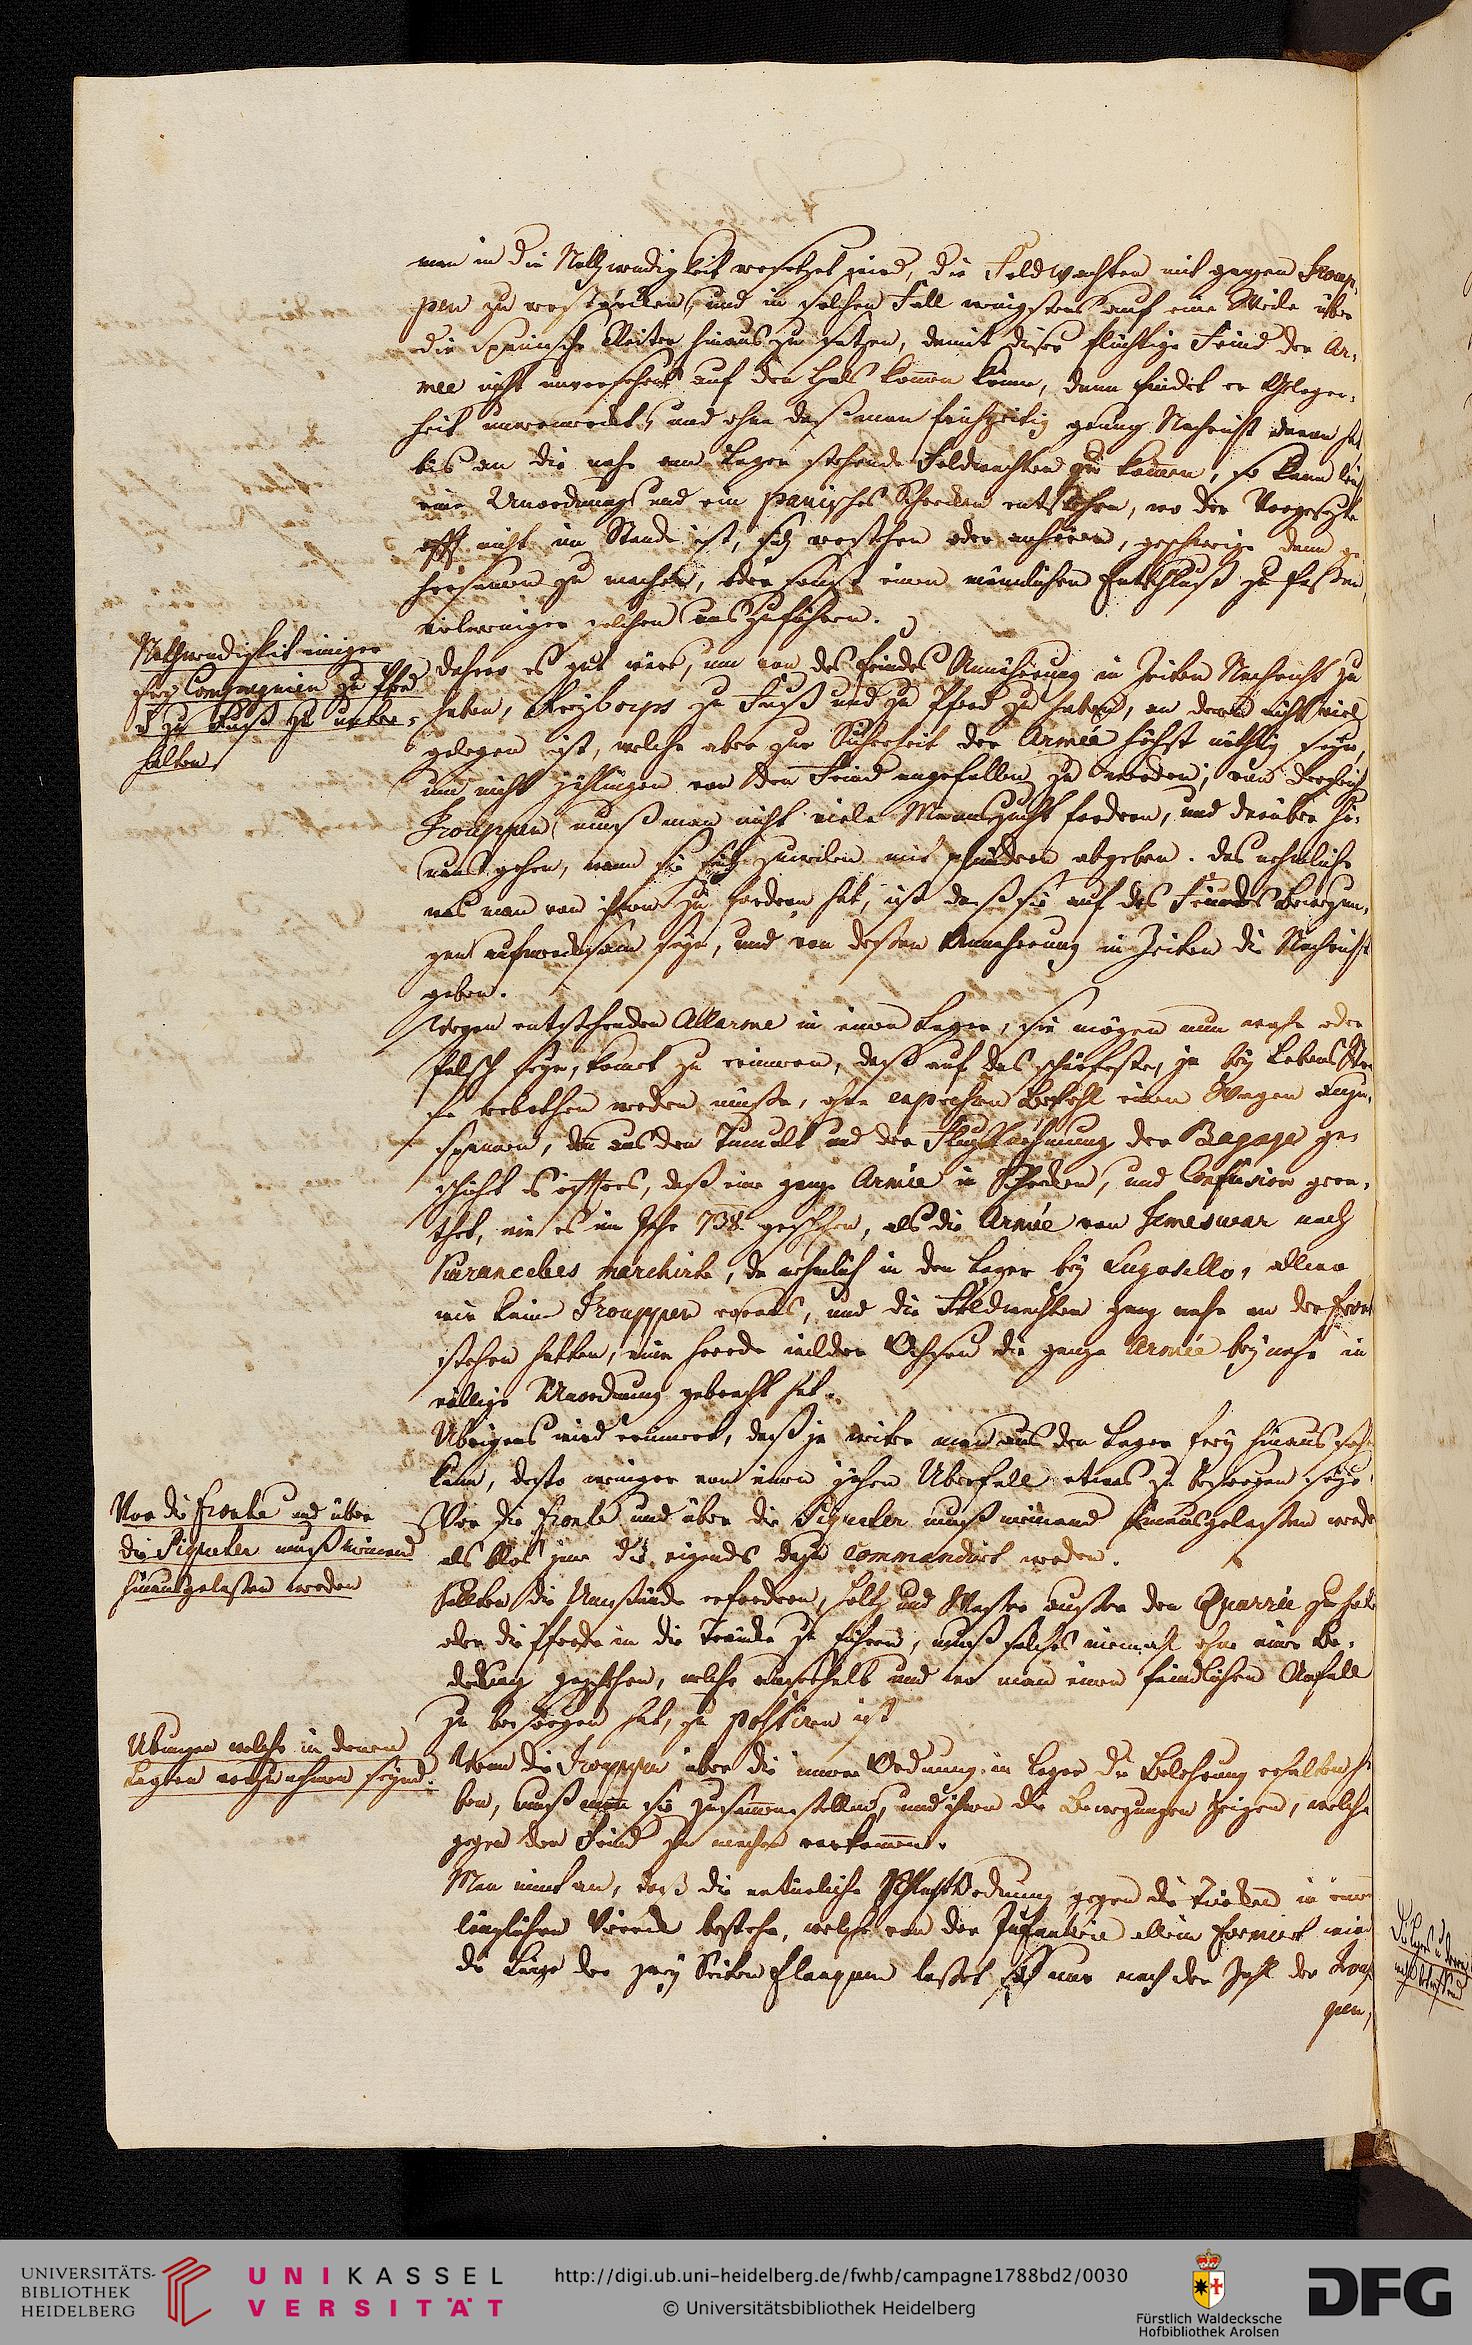 man in die Nothwendigkeit versetzet wird, die Feldwachten mit gantzen Troup,
pen zu verstärcken, und in solchen Fall wenigstens auf eine Meile über
die spanische Reiter hinaus zu setzen, damit dieser flüchtige Feind der Ar,
mee nicht unversehens auf den Hals komen könne, dann findet er Gelegen,
heit unvermerckt, und ohne daß man frühzeitig genug Nachricht davon hat
bis an die nahe am Lager stehende Feldwachten zu komen, so kann leicht
eine Unordnung und ein panisches Schrecken entstehen, wo der Vorgesezte
offt nicht im Stande ist, sich verstehen oder anhören, geschweige dann ge
horsamen zu machen, oder sonst einen männlichen Entschluß zu faßen
vielweniger solchen auszuführen.
Nothwendigkeit einiger
frey Compagnien zu Pferd
u zu Fuß zu unter-
halten
Dahero es gut wäre, um von des Feindes Annäherung in Zeiten Nachricht zu
haben, Freycorps zu Fuß und zu Pferd zu haben, an denen nicht viel
gelegen ist, welche aber zur Sicherheit der Armée höchst nöthig seyn,
um nicht jählingen von dem Feind angefallen zu werden; von dergleich
Trouppen muß man nicht viele Mannszucht fordern, und darüber hi-
naus gehen, wann sie sich zuweilen mit plündern abgeben. das nehmliche
was man von ihnen zu fordern hat, ist daß sie auf des Feindes Bewegun,
gen aufmercksam seyn, und von deßen Annäherung in Zeiten die Nachricht
geben.
Wegen entstehenden Allarme in einem Lager, sie mögen nun wahr oder
falsch seyn, komt zu erinnern, daß auf das schärfeste, ja bey Lebens Stra
fe verbothen werden müße, ohne expressen Befehl einen Wagen anzu,
spannen, den aus dem Tumult und der Fluchtnehmung der Bagage ge-
schicht es öffters, daß eine gantze Armée in Schrecken, und Confusion gera,
thet, wie es im Jahr 738. geschehen, als die Armée von Temeswar nach
Caransebes marchirte, da nehmlich in dem Lager bey Lugosello, allwo
wir keine Trouppen voraus, und die Feldwachten gantz nahe an der Front
stehen hatten, eine Heerde wilder Ochsen die gantze Armée bey nahe in
völlige Unordnung gebracht hat.
Übrigens wird erinnert, daß je weiter man aus dem Lager frey hinaus sehen
kann, desto weniger von einem jähen Überfall etwas zu besorgen seye.
Vor die Fronte und über
die Piqueter muß niemand
hinausgelaßen werden
Vor die Fronte und über die Piqueter muß niemand hinausgelaßen werden
als blos jene die eigends dazu commandirt werden.
Sollten die Umstände erfordern, Holtz und Waßer außer dem Quarrée zu holen
oder die Pferde in die Träncke zu führen, muß solches niemahl ohne eine Be-
deckung geschehen, welche ausserhalb und wo man einen feindlichen Anfall
zu besorgen hat, zu postiren ist
Übungen welche in denen
Lagern vorzunehmen seynd.
Wenn die Trouppen über die innere Ordnung im Lager die Belehrung erhalten ha
ben, muß man sie zusamenstellen, und ihnen die Bewegungen zeigen, welche
gegen den Feind zu machen vorkomen.
Man nimt an, daß die natürliche Schlacht Ordnung gegen die Türcken in einem
länglichen Viereck bestehe, welches von der Infanterie allein formirt wird
die Länge der zwey Seiten Flanquen laßet sich nur nach der Zahl der Troup
pen,
UNIVERSITÄTS-
BIBLIOTHEK
HEIDELBERG
UNIKASSEL
VERSITÄT
http://digi.ub.uni-heidelberg.de/fwhb/campagne1788bd2/0030
© Universitätsbibliothek Heidelberg
Fürstlich Waldecksche
Hofbibliothek Arolsen
DFG